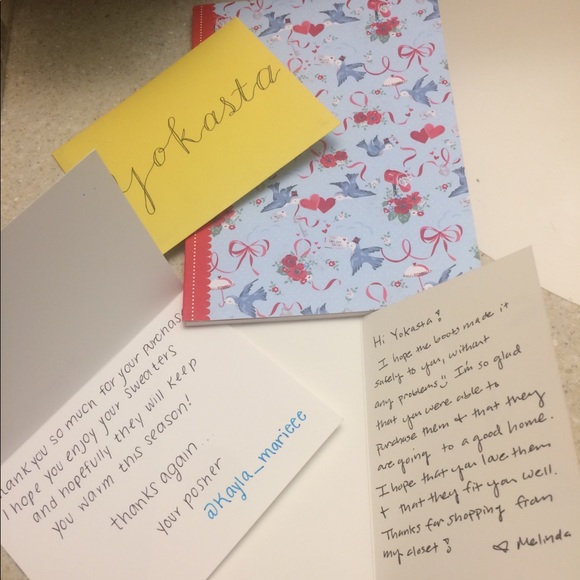 yokasta
Thank you so much for your purchase
I hope you enjoy your sweaters
and hopefully they will keep
you warm this season!
thanks again...
your posher
@kayla_marieee
Hi Yokasta!
I hope the boots made it
safely to you, without
any problems! I'm so glad
that you were able to
purchase them & that they
are going to a good home.
I hope that you love them
& that they fit you well.
Thanks for shopping from
my closet!
Melinda